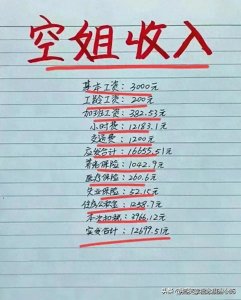 空姐收入
基本工资：3000元
工龄工资：200元
加班工资：382.53元
小时费：12183.1元
交通费：1200元
应发合计：16655.51元
养老保险：1042.9元
医疗保险：260.6元
失业保险：52.15元
住房公积金：1258.7元
本次扣税：3966.12元
实发合计：12699.51元